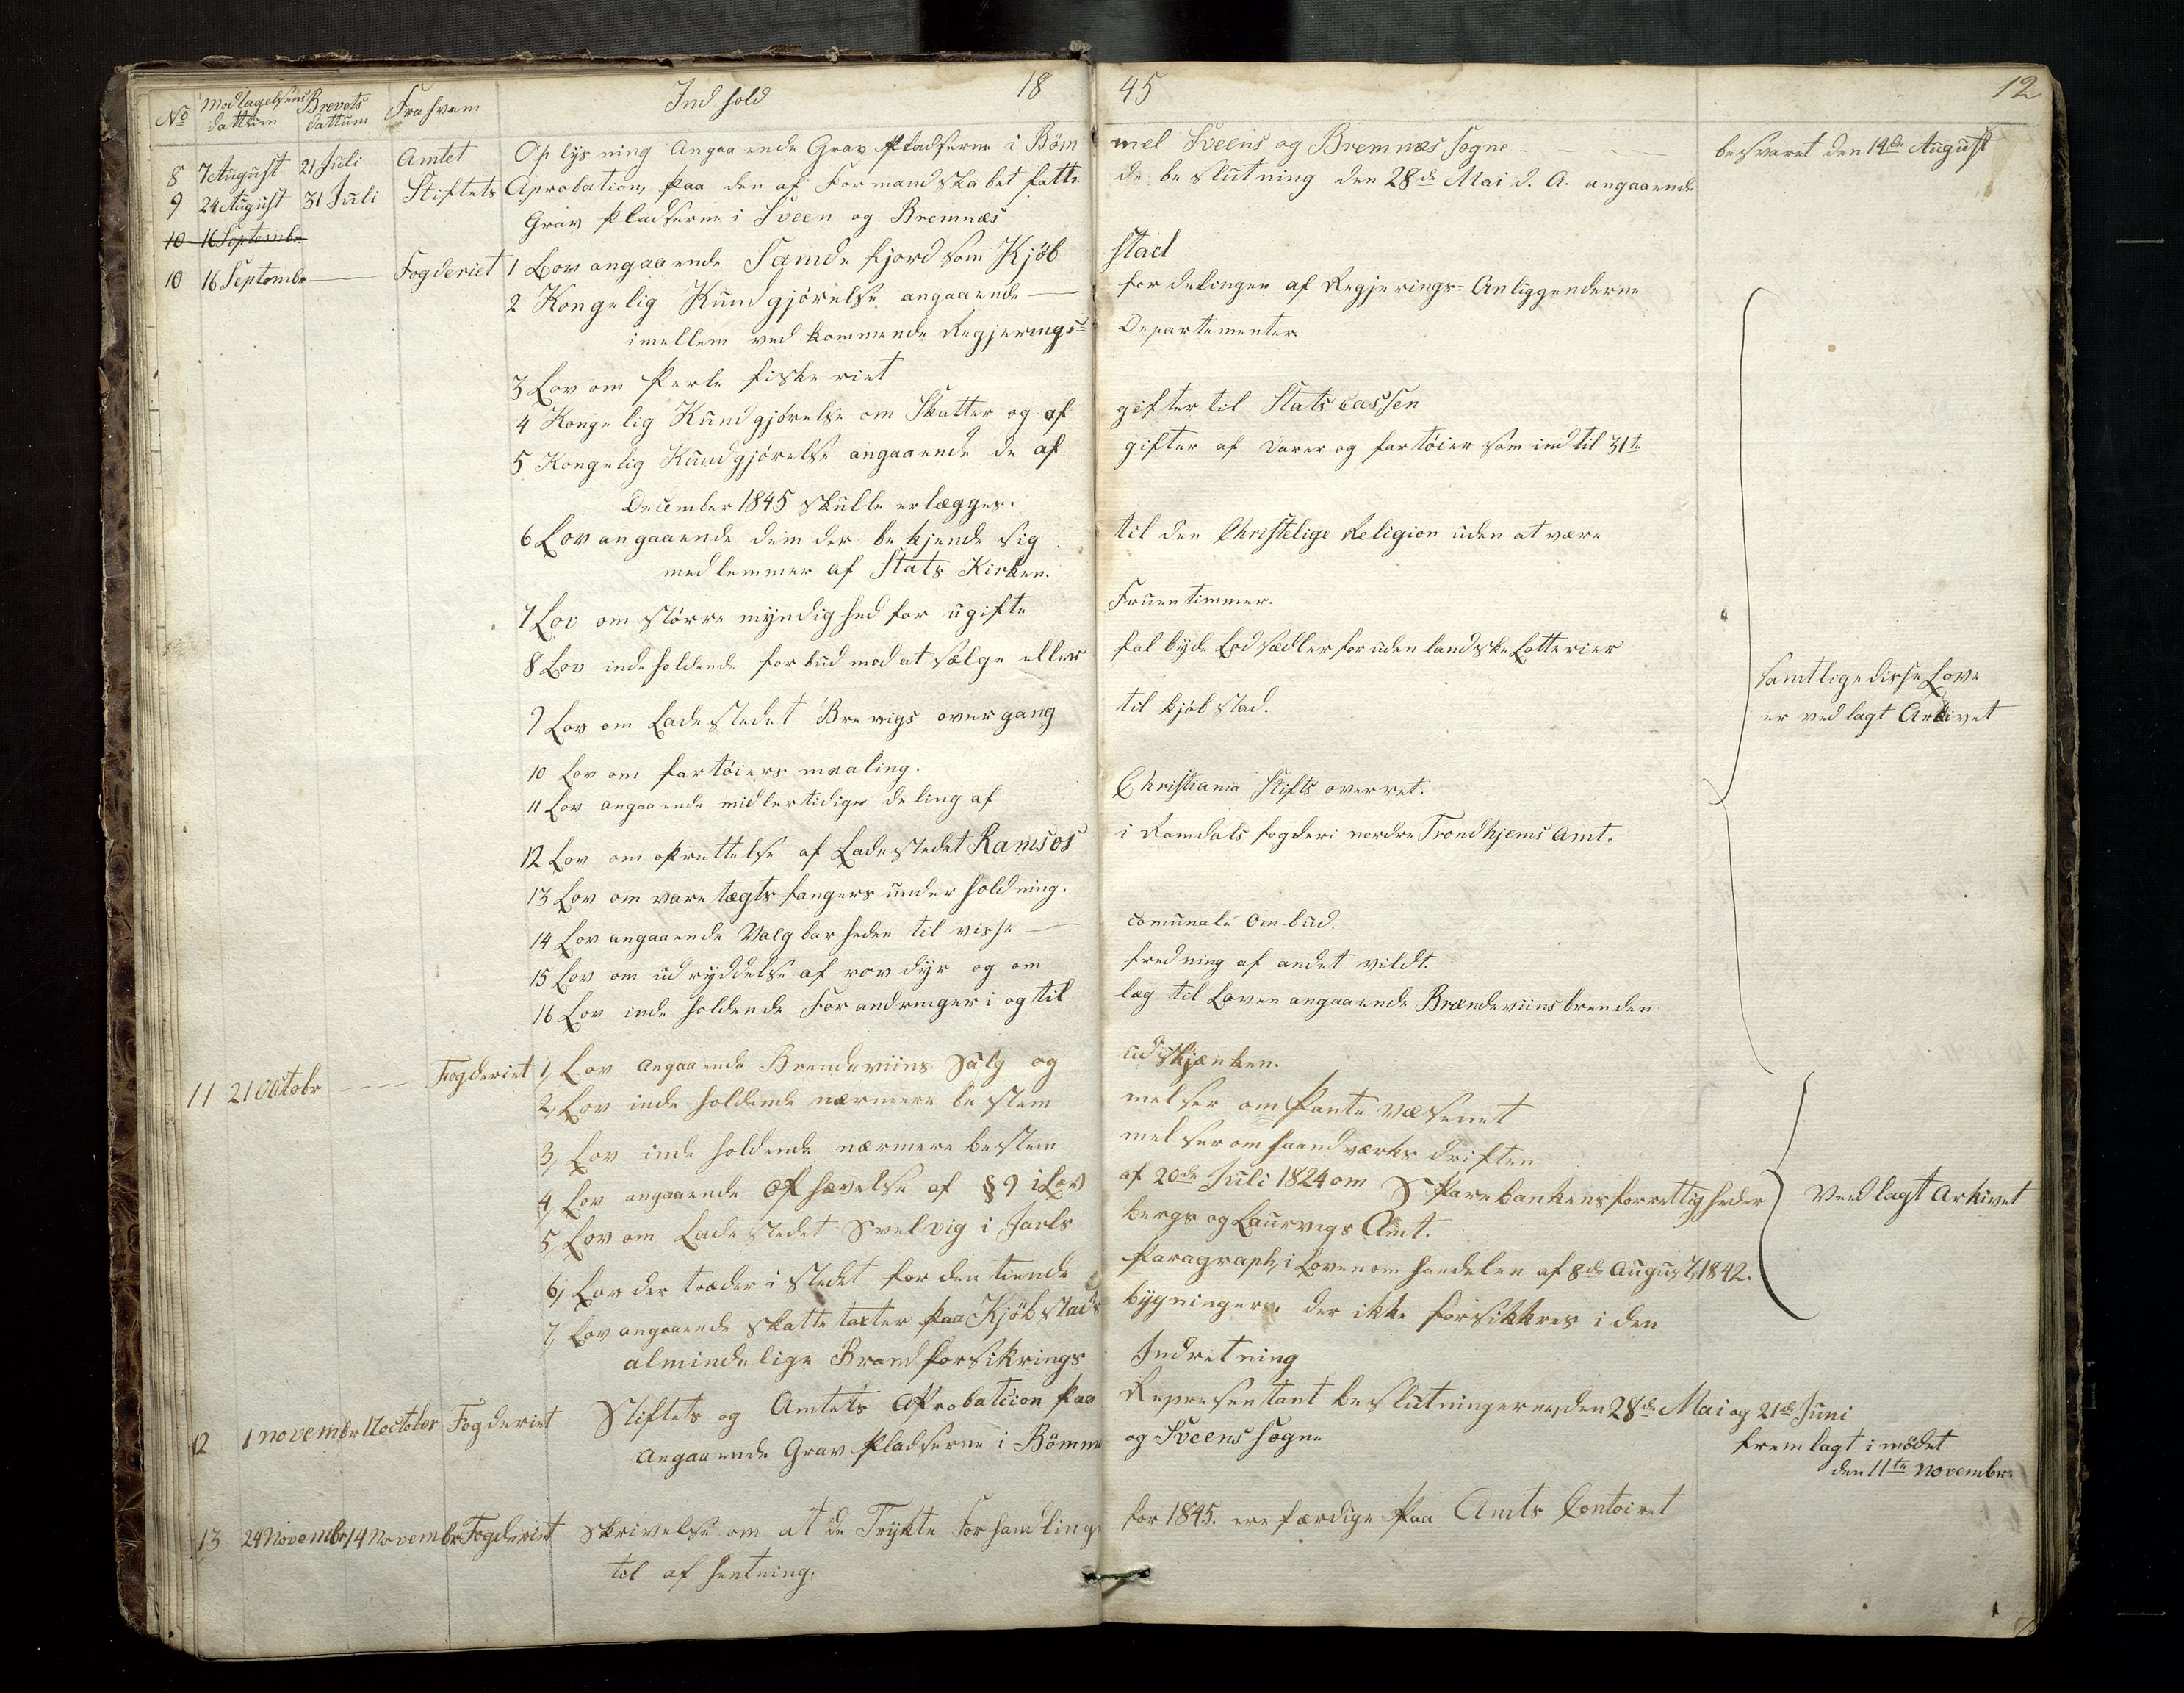 No Modtagelsens dattum Brevets dattum Fra hvem Indhold 1845 12
8 7 August 21 Juli Amtet Oplysning Angaaende Grav Pladserne i Bömmel Sveens og Bremnæs Sogne besvaret den 14de August
9 24 August 31 Juli Stiftets Aprobation, paa den af Formandskabet fattede beslutning den 28de Mai d. A. angaaende
Grav pladserne i Sveen og Bremnæs
10 16 Septembr
10 16 Septembr — Fogderiet 1 Lov angaaende Sandefjord som Kjöbstad
2 Kongelig Kundgjörelse angaaende — fordelingen af Regjerings-Anliggenderne
imellem vedkommende Regjerings- Departementer.
3 Lov om Perle fiskeriet
4 Kongelig Kundgjörelse om Skatter og afgifter til Statscassen
5 Kongelig Kundgjörelse angaaende de afgifter af Varer og fartöier som indtil 31te
December 1845 skulle erlægges.
6 Lov angaaende dem der bekjende sig til den Christelige Religion uden at være
medlemmer af Stats Kirken.
7 Lov om större myndighed for ugifte Fruentimmer.
8 Lov indeholdende forbud mod at sælge eller falbyde Lodsedler for udenlandske Lotterier
9 Lov om Ladestedet Brevigs overgang til kjöbstad.
10 Lov om fartöiers maaling.
11 Lov angaaende midlertidige deling af Christiania Stifts overret.
12 Lov om oprettelse af Ladestedet Ramsos i Namdals fogderi nordre Trondhjems Amt.
13 Lov om varetægts fangers underholdning.
14 Lov angaaende Valgbarheden til visse — comunale Ombud.
15 Lov om udryddelse af rovdyr og om fredning af andet vildt.
16 Lov indeholdende Forandringer i og tillæg til Loven angaaende Brændeviinsbrenden.
Samtlige disse Love
er vedlagt Arkivet
11 21 Octobr — Fogderiet 1, Lov angaaende Brendeviins Salg og udskjænken.
2, Lov indeholdende nærmere bestemmelser om Pantevæsenet
3, Lov indeholdende nærmere bestemmelser om haandværks driften
4, Lov angaaende Ophævelse af § 9 i Lov af 20de Juli 1824 om Sparebankens forrettigheder
5, Lov om Ladestedet Svelvig i Jarlsbergs og Laurvigs Amt.
6, Lov der træder i stedet for den tiende Paragraph, i Loven om handelen af 8de August, 1842.
7, Lov angaaende skatte taxter paa Kjöbstads bygningers, der ikke forsikkres i den
almindelige Brandforsikrings Indretning
Vedlagt Arkivet
12 1 novembr 17 october Fogderiet Stiftets og Amtets Aprobatcion paa Representant beslutningerne, den 28de Mai og 21de Juni
angaaende Grav pladserne i Bömme og Sveens Sogne
fremlagt i mödet
den 11te Novembr.
13 24 Novembr 14 Novembr Fogderiet Skrivelse om at de Trykte Forhandlinge for 1845. ere færdige paa Amts Contoiret
til afhentning.